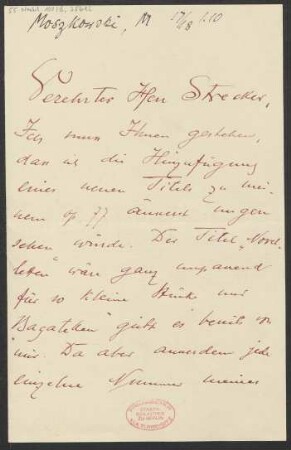 Moszkowski, M
Verehrter Herr Strecker,
Ich muss Ihnen gestehen,
dass ich die Hinzufügung
eines neuen Titels zu mei-
nem op 77 äusserst ungern
sehen würde. Der Titel "Novel-
letten" wäre ganz unpassend
für so kleine Stücke und
"Bagatellen" giebt es bereits von
mir. Da aber ausserdem jede
einzelne Nummer meines